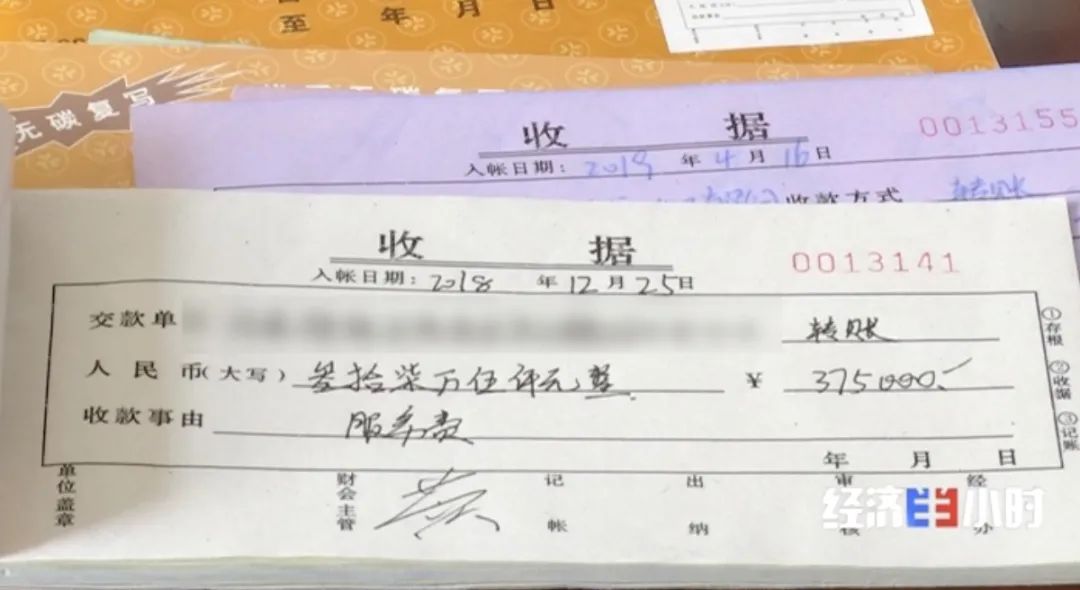 至 年 月 日
无碳复写
收 据
0013155
入帐日期: 2019 年 4 月 16 日
收款方式 转账
收 据
0013141
入帐日期: 2018 年 12 月 25 日
交款单 转账
人民币(大写) 叁拾柒万伍仟元整 ¥ 375000.-
收款事由 服务费
年 月 日
①存根
②收据
③记账
单位盖章
财会主管 黄
记帐
出纳
审核
经办
经济半小时